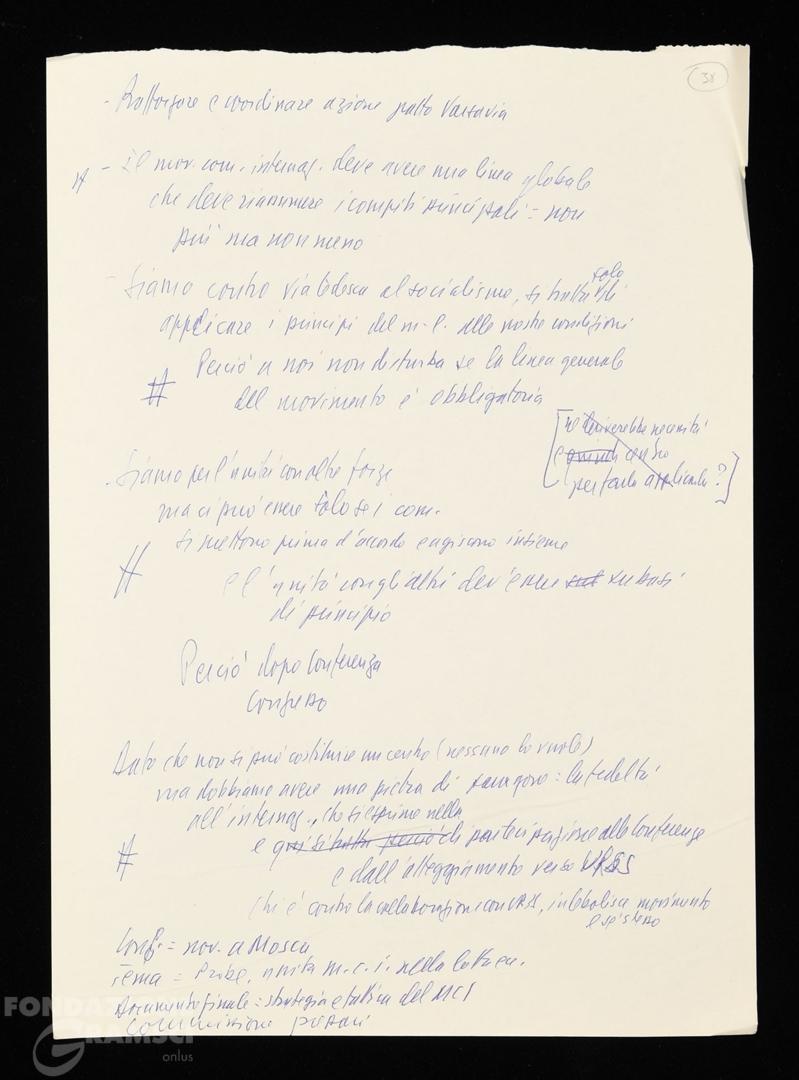 38
- Rafforzare e coordinare azione patto Varsavia
- Il mov. com. internaz. deve avere una linea globale
che deve riassumere i compiti principali = non
più ma non meno
- Siamo contro via tedesca al socialismo, si tratta solo di
applicare i principi del m-l. alle nostre condizioni
# Perciò a noi non disturba se la linea generale
del movimento è obbligatoria
[se deriverebbe necessità
e quindi centro
per farla applicare?]
- Siamo per l'unità con altre forze
ma ci può essere solo se i com.
si mettono prima d'accordo e agiscono insieme
# e l'unità con gli altri dev'essere su basi
di principio
Perciò dopo Conferenza
Congresso
Dato che non si può costituire un centro (nessuno lo vuole)
ma dobbiamo avere una pietra di paragone = la fedeltà
all'internaz., che si esprime nella
# e partecipazione alla Conferenza
e dall'atteggiamento verso URSS
Chi è contro la collaborazione con URSS, indebolisce movimento
e se stesso
Conf. = nov. a Mosca
Tema = Probl. unità m.c.i. nella lotta
Documento finale = strategia e tattica del MCI
Commissione
FONDAZIONE
GRAMSCI
onlus